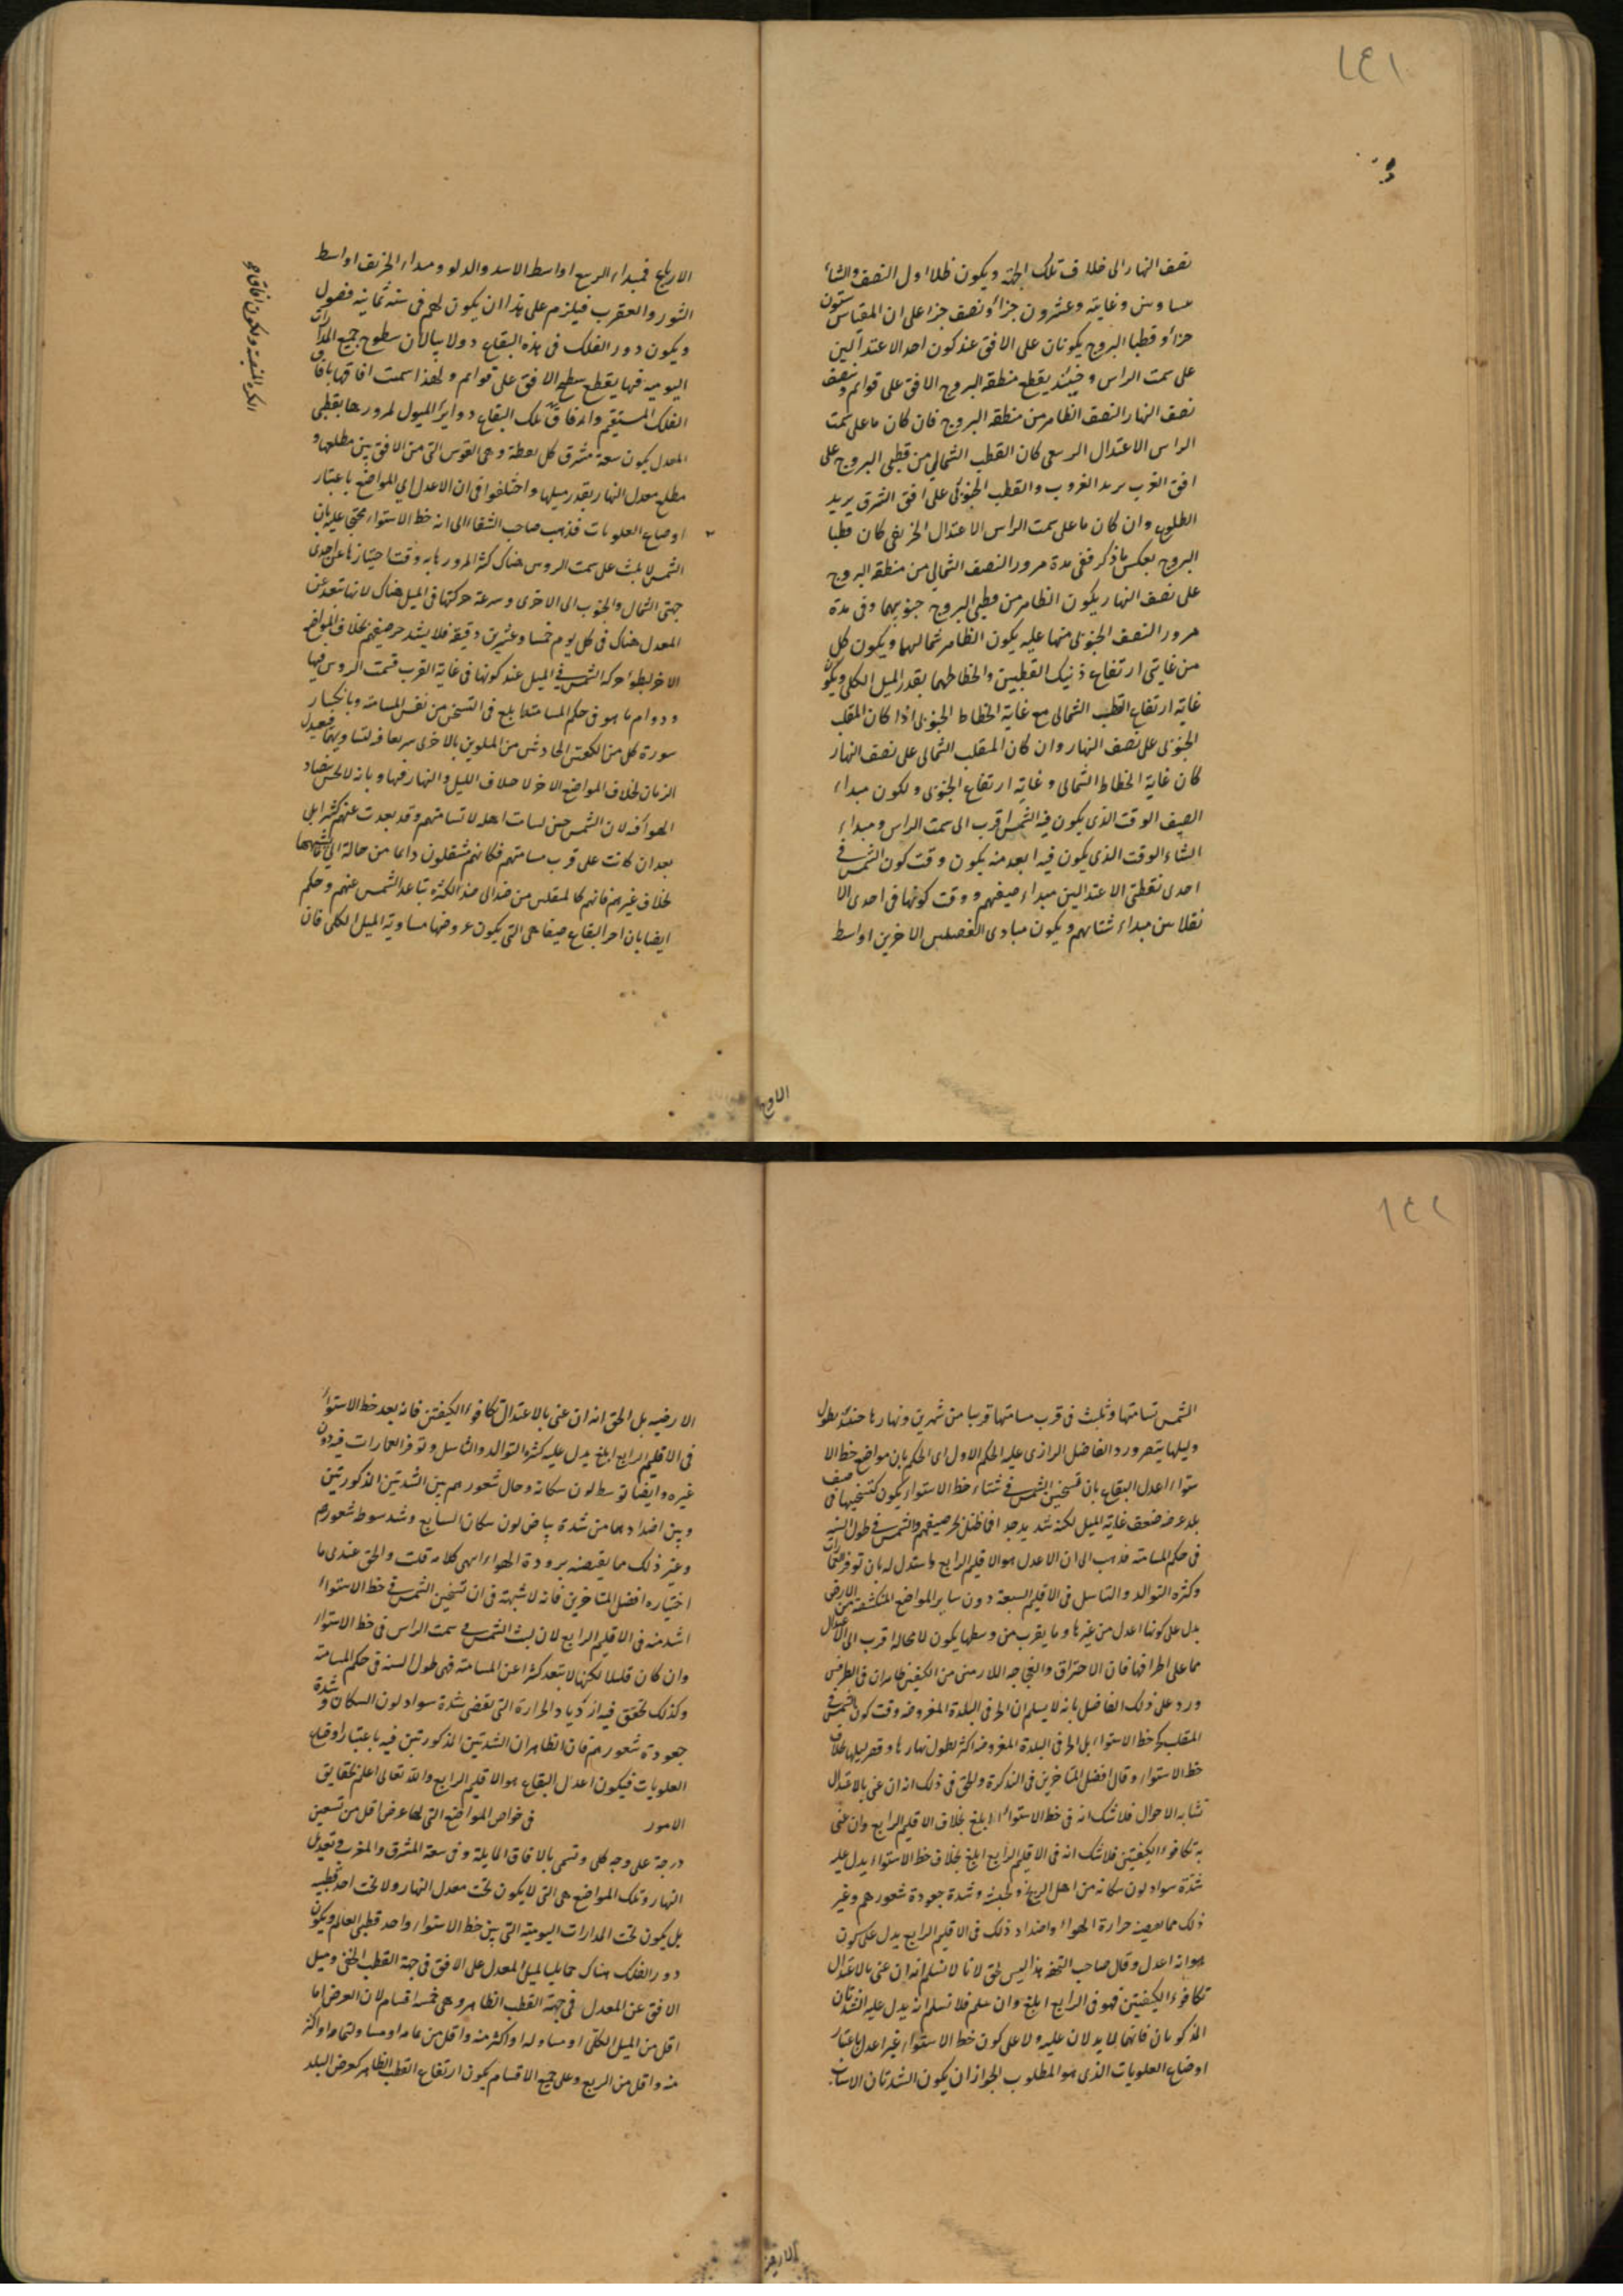 ١٤١
نصف النهار الى خلاف تلك الجهة ويكون ظلا اول الصيف والشتاء
متساويين وغايته وعشرون جزأ ونصف جزء على ان المقياس ستون
جزأ وقطبا البروج يكونان على الافق عند كون احد الاعتدالين
على سمت الراس وحينئذ يقطع منطقة البروج الافق على قوائم ونصف
نصف النهار النصف الظاهر من منطقة البروج فان كان ما على سمت
الراس الاعتدال الربيعى كان القطب الشمالي من قطبي البروج على
افق الغرب يريد الغروب والقطب الجنوبى على افق الشرق يريد
الطلوع وان كان ما على سمت الراس الاعتدال الخريفى كان قطبا
البروج بعكس ما ذكر ففى مدة مرور النصف الشمالي من منطقة البروج
على نصف النهار يكون الظاهر من قطبي البروج جنوبيهما وفى مدة
مرور النصف الجنوبى منها عليه يكون الظاهر شماليهما ويكون كل
من غايتى ارتفاع ذينك القطبين وانحطاطهما بقدر الميل الكلى ويكون
غاية ارتفاع القطب الشمالى مع غاية انحطاط الجنوبى اذا كان المنقلب
الجنوبى على نصف النهار وان كان المنقلب الشمالى على نصف النهار
كان غاية انحطاط الشمالى وغاية ارتفاع الجنوبى ولكون مبداء
الصيف الوقت الذى يكون فيه الشمس اقرب الى سمت الراس ومبداء
الشتاء الوقت الذى يكون فيه ابعد منه يكون وقت كون الشمس فى
احدى نقطتى الاعتدالين مبداء صيفهم ووقت كونها فى احدى الا
نقلابين مبداء شتائهم ويكون مبادى الفصلين الاخرين اواسط
الارباع
الارباع فمبداء الربيع اواسط الاسد والدلو ومبداء الخريف اواسط
الثور والعقرب فيلزم على هذا ان يكون لهم فى سنة ثمانية فصول
ويكون دور الفلك فى هذه البقاع دولابيا لان سطوح جميع المدارات
اليومية فيها يقطع سطح الافق على قوائم ولهذا سميت افاقها بافاق
الفلك المستقيم وافاق تلك البقاع دوائر الميول لمرورها بقطبى
المعدل يكون سعة مشرق كل نقطة وهى القوس التى من الافق بين مطلعها و
مطلع معدل النهار بقدر ميلها واختلفوا فى ان الاعدل اي المواضع باعتبار
اوضاع العلويات فذهب صاحب الشفاء الى انه خط الاستواء محتجا عليه بان
الشمس لا تلبث على سمت الروس هناك كثيرا لمرورها به وقت اجتيازها عن احدى
جهتى الشمال والجنوب الى الاخرى وسرعة حركتها فى الميل هناك لانها تبعد عن
المعدل هناك فى كل يوم خمسا وعشرين دقيقة فلا يشتد حر صيفهم بخلاف المواضع
الاخر لبطؤ حركة الشمس فى الميل عند كونها فى غاية القرب قسمت الروس فيها
ودوام ما هو فى حكم المسامتة ابلغ فى التسخين من نفس المسامتة وبانكسار
سورة كل من الكيفيتين الحادثتين من الملوين بالاخرى سريعا لتساويهما فيعدل
الزمان بخلاف المواضع الاخر لاختلاف الليل والنهار فيها وبانه لا يحس بتضاد
الهواء فيه لان الشمس حين لسامت اهله لا تسامتهم وقد بعدت عنهم كثيرا بل
بعد ان كانت على قرب مسامتهم فكانهم منتقلون دائما من حالة الى ما يشبهها
بخلاف غيرهم فانهم كالمنتقلين من ضد الى ضد لكثرة تباعد الشمس عنهم وحكم
ايضا بان احر البقاع صيفا هى التى يكون عروضها مساوية للميل الكلى فان
١٤٢
الشمس تسامتها وتلبث فى قرب مسامتها قريبا من شهرين ونهارها حينئذ يطول
وليلها يقصر ورد الفاضل الرازى عليه الحكم الاول اى الحكم بان مواضع خط الا
ستواء اعدل البقاع بان تسخين الشمس فى شتاء خط الاستواء يكون كتسخينها فى صيف
بلد عرضه ضعف غاية الميل لكنه شديد جدا فما ظنك بحر صيفهم والشمس فى طول السنة
فى حكم المسامتة فذهب الى ان الاعدل هو الاقليم الرابع واستدل له بان توفر العمارات
وكثرة التوالد والتناسل فى الاقاليم السبعة دون ساير المواضع المنكشفة من الارض
يدل على كونها اعدل من غيرها وما يقرب من وسطها يكون لا محالة اقرب الى الاعتدال
مما على اطرافها فان الاحتراق والفجاجة اللازمين من الكيفيتين ظاهران فى الطرفين
ورد على ذلك الفاضل بانه لا يسلم ان الحر فى البلدة المفروضة وقت كون الشمس فى
المنقلب كحر خط الاستواء بل الحر فى البلدة المفروضة اكثر لطول نهارها وقصر ليلها بخلاف
خط الاستواء وقال افضل المتاخرين فى التذكرة والحق فى ذلك انه ان عنى بالاعتدال
تشابه الاحوال فلا شك انه فى خط الاستواء ابلغ بخلاف الاقليم الرابع وان عنى
به تكافؤ الكيفيتين فلا شك انه فى الاقليم الرابع ابلغ بخلاف خط الاستواء يدل عليه
شدة سواد لون سكانه من اهل الزنج والحبشة وشدة جعودة شعورهم وغير
ذلك مما يقتضيه حرارة الهواء واضداد ذلك فى الاقليم الرابع يدل على كون
هوائه اعدل وقال صاحب التحفة هذا ليس بحق لانا لا نسلم انه ان عنى بالاعتدال
تكافؤ الكيفيتين فهو فى الرابع ابلغ وان سلم فلا نسلم انه يدل عليه الشدتان
المذكورتان فانهما لا يدلان عليه ولا على كون خط الاستواء غير اعدل باعتبار
اوضاع العلويات الذى هو المطلوب لجواز ان يكون الشدتان لاسباب
الارضية
الارضيه بل الحق انه ان عنى بالاعتدال تكافؤ الكيفيتين فانه بعد خط الاستواء
فى الاقليم الرابع ابلغ يدل عليه كثرة التوالد والتناسل وتوفر العمارات فيه دون
غيره وايضا توسط لون سكانه وحال شعورهم بين الشدتين المذكورتين
وبين اضدادهما من شدة بياض لون سكان السابع وشدة سبوط شعورهم
وغير ذلك مما يقتضيه برودة الهواء انتهى كلامه قلت والحق عندى ما
اختاره افضل المتاخرين فانه لا شبهة فى ان تسخين الشمس فى خط الاستواء
اشد منه فى الاقليم الرابع لان لبث الشمس فى سمت الراس فى خط الاستواء
وان كان قليلا لكنها لا تبعد كثيرا عن المسامتة فهى طول السنة فى حكم المسامتة
وكذلك تحقق فيه ازدياد الحرارة التى تقتضى شدة سواد لون السكان وشدة
جعودة شعورهم فان الظاهر ان الشدتين المذكورتين فيه باعتبار اوضاع
العلويات فيكون اعدل البقاع هو الاقليم الرابع والله تعالى اعلم بحقايق
الامور فى خواص المواضع التى لها عرض اقل من تسعين
درجة على وجه كلى وتسمى بالافاق المايلة وفى سعة المشرق والمغرب وتعديل
النهار وتلك المواضع هى التى لا يكون تحت معدل النهار ولا تحت احد قطبيه
بل يكون تحت المدارات اليومية التى بين خط الاستواء واحد قطبى العالم ويكون
دور الفلك هناك حمايليا لميل المعدل على الافق فى جهة القطب الخفى وميل
الافق عن المعدل فى جهة القطب الظاهر وهى خمسة اقسام لان العرض اما
اقل من الميل الكلى او مساو له او اكثر منه واقل من تمامه او مساو لتمامه او اكثر
منه واقل من الربع وعلى جميع الاقسام يكون ارتفاع القطب الظاهر كعرض البلد